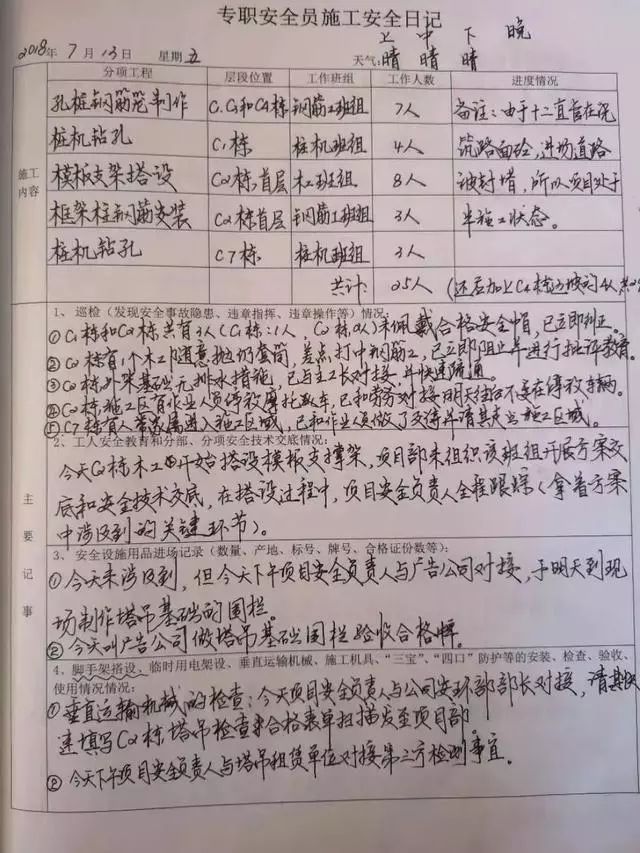 专职安全员施工安全日记
上 中 下 晚
2018年 7月 13日 星期五 天气: 晴 晴 晴
施工内容 分项工程 层段位置 工作班组 工作人数 进度情况
孔桩钢筋笼制作 钢筋工班组 7人 备注:由于十二直管在浇
桩机钻孔 C1栋 桩机班组 4人 筑路面砼,进场道路
模板支架搭设 C2栋,首层 木工班组 8人 被封堵,所以项目处于
框架柱钢筋安装 C2栋首层 钢筋工班组 3人 半施工状态。
桩机钻孔 C7栋 桩机班组 3人
共计: 25人
主要记事
1、巡检(发现安全事故隐患、违章指挥、违章操作等)情况:
① C1栋和C2栋共有3人(C1栋:1人,C2栋2人)未佩戴合格安全帽,已立即纠正。
② C2栋有1个木工随意抛扔套筒,差点打中钢筋工,已立即阻止并进行批评教育。
③ C2栋外架基础无排水措施,已与主工长对接,并快速疏通。
④ C2栋施工区有作业人员停放摩托车,已和劳务对接明天往后不要在停放车辆。
⑤ C7栋有人带家属进入施工区域,已和作业人员做了交待并请其走出施工区域。
2、工人安全教育和分部、分项安全技术交底情况:
今天C2栋木工开始搭设模板支撑架,项目部未组织该班组开展方案交
底和安全技术交底,在搭设过程中,项目安全负责人全程跟踪(拿着方案
中涉及到的关键环节)。
3、安全设施用品进场记录(数量、产地、标号、牌号、合格证份数等):
① 今天未涉及到,但今天下午项目安全负责人与广告公司对接,于明天到现
场制作塔吊基础的围栏。
② 今天叫广告公司做塔吊基础围栏验收合格牌。
4、脚手架搭设、临时用电架设、垂直运输机械、施工机具、“三宝”、“四口”防护等的安装、检查、验收、
使用情况情况:
① 垂直运输机械的检查:今天项目安全负责人与公司安环部部长对接,请其快
速填写C2栋塔吊检查合格表单扫描发至项目部。
② 今天下午项目安全负责人与塔吊租赁单位对接第三方检测事宜。